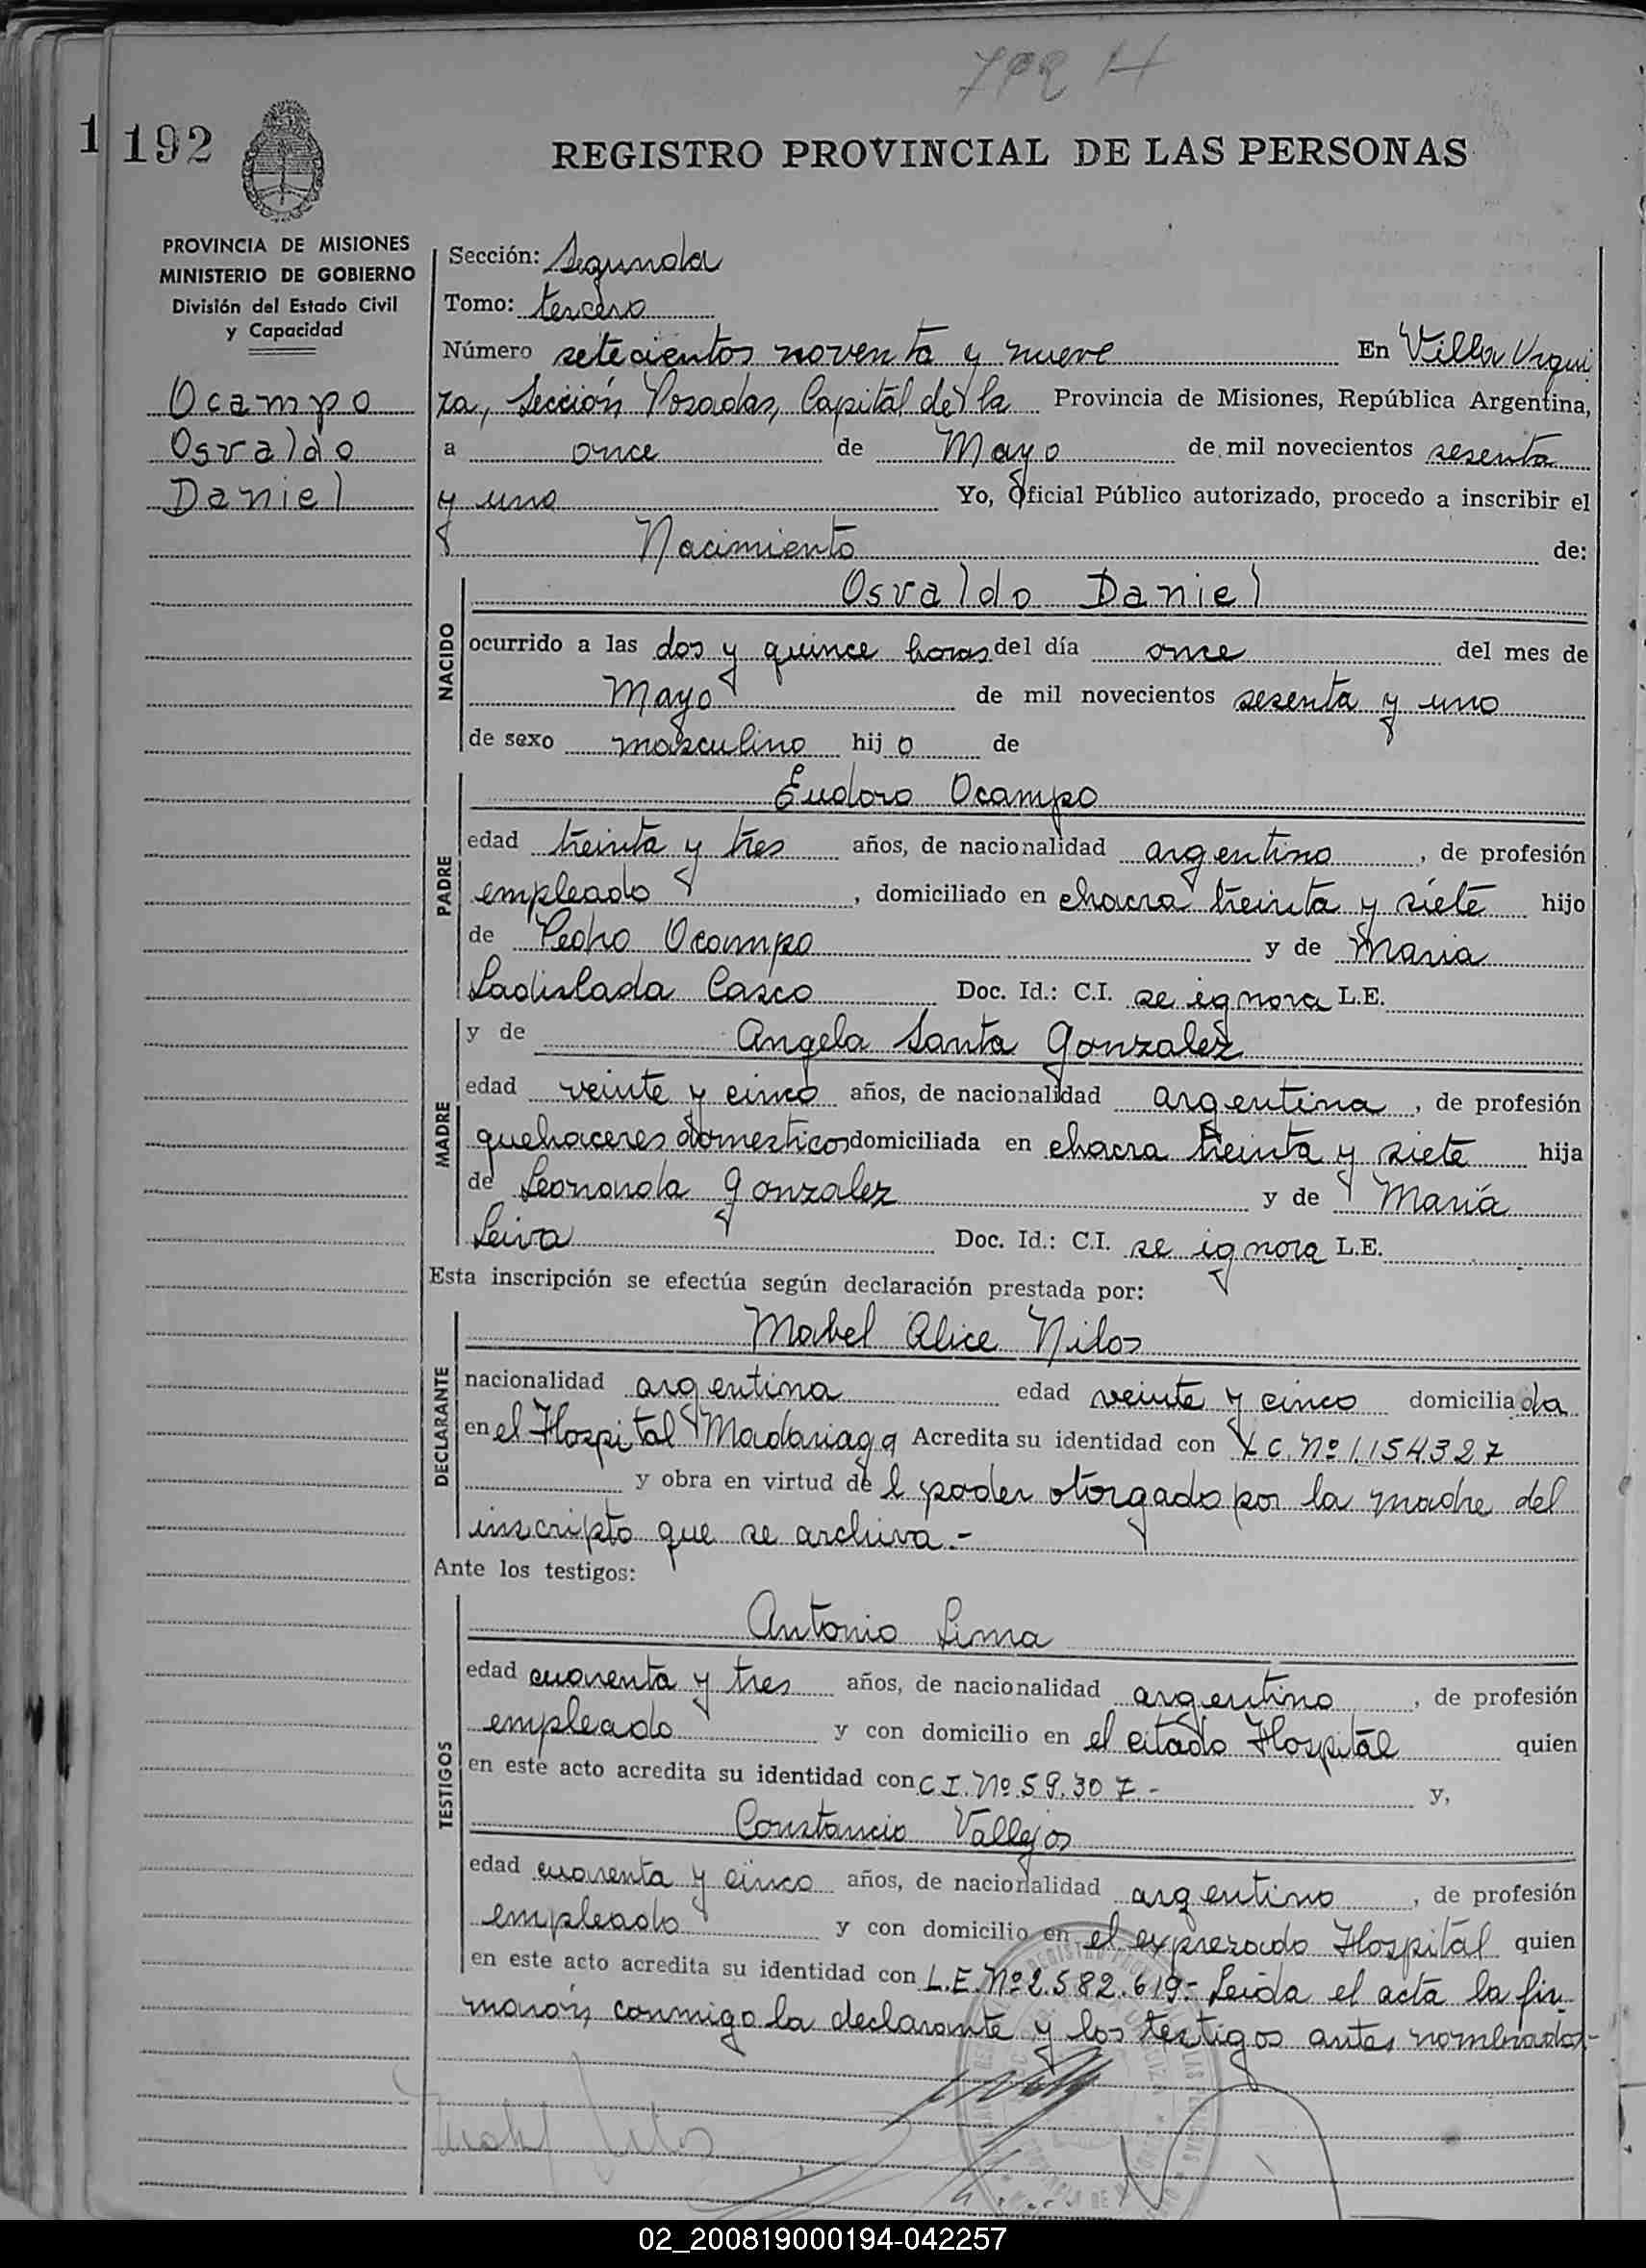 192
REGISTRO PROVINCIAL DE LAS PERSONAS
PROVINCIA DE MISIONES
MINISTERIO DE GOBIERNO
División del Estado Civil
y Capacidad
Ocampo
Osvaldo
Daniel
Sección: Segunda
Tomo: tercero
Número setecientos noventa y nueve En Villa Urqui
za, Sección Posadas, Capital de la Provincia de Misiones, República Argentina,
a once de Mayo de mil novecientos sesenta
y uno Yo, Oficial Público autorizado, procedo a inscribir el
Nacimiento de:
NACIDO
Osvaldo Daniel
ocurrido a las dos y quince horas del día once del mes de
Mayo de mil novecientos sesenta y uno
de sexo masculino hijo de
PADRE
Eudoro Ocampo
edad treinta y tres años, de nacionalidad argentino, de profesión
empleado, domiciliado en chacra treinta y siete hijo
de Pedro Ocampo y de Maria
Ladislada Casco Doc. Id.: C.I. se ignora L.E.
MADRE
y de Angela Santa Gonzalez
edad veinte y cinco años, de nacionalidad argentina, de profesión
quehaceres domesticos domiciliada en chacra treinta y siete hija
de Leonarda Gonzalez y de María
Leiva Doc. Id.: C.I. se ignora L.E.
Esta inscripción se efectúa según declaración prestada por:
DECLARANTE
Mabel Alice Nilos
nacionalidad argentina edad veinte y cinco domiciliada
en el Hospital Madariaga Acredita su identidad con L C. Nº 1.154327
y obra en virtud del poder otorgado por la madre del
inscripto que se archiva.-
Ante los testigos:
TESTIGOS
Antonio Lima
edad cuarenta y tres años, de nacionalidad argentino, de profesión
empleado y con domicilio en el citado Hospital quien
en este acto acredita su identidad con C I. Nº 59.307.- y,
Constancio Vallejos
edad cuarenta y cinco años, de nacionalidad argentino, de profesión
empleado y con domicilio en el expresado Hospital quien
en este acto acredita su identidad con L.E. Nº 2.582.619.- Leida el acta la fir
maron, conmigo la declarante y los testigos antes nombrados.-
02_200819000194-042257